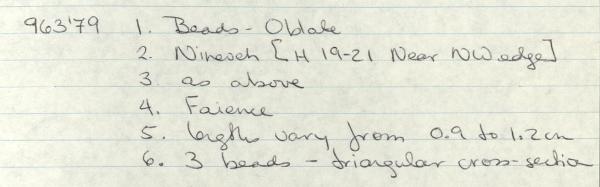 963'79 1. Beads - Oblate
2. Nineveh [H 19-21 Near NW edge]
3. as above
4. Faience
5. lengths vary from 0.9 to 1.2cm
6. 3 beads - triangular cross-section